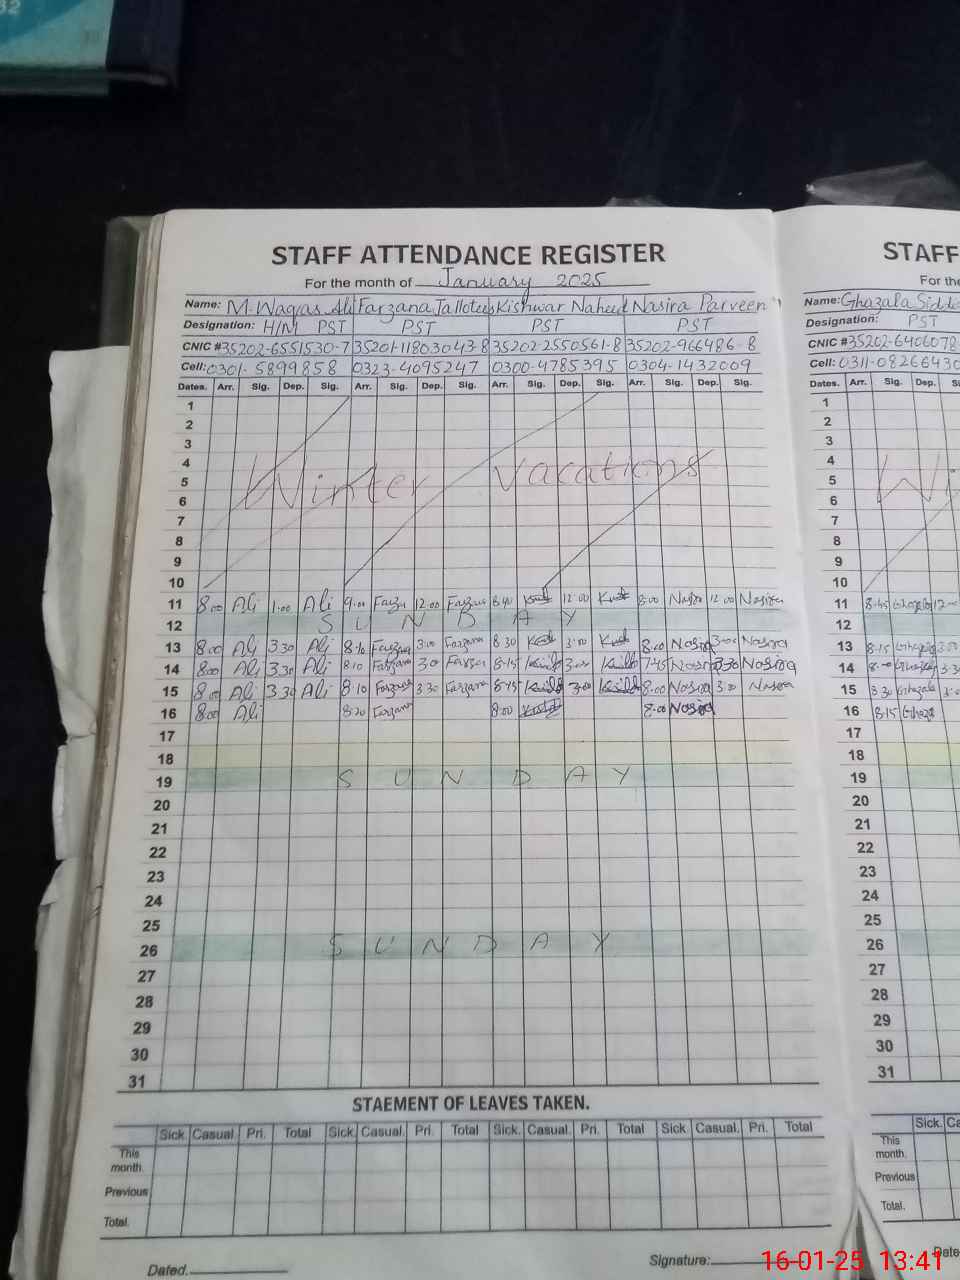 32
STAFF ATTENDANCE REGISTER
For the month of January 2025
Name: M. Waqas Ali Farzana Kishwar Naheed Nasira Parveen
Designation: H/M PST PST PST PST
CNIC #35202-6551530-7 35201-11803043-8 35202-2550561-8 35202-966486-8
Cell: 0301-5899858 0323-4095247 0300-4785395 0304-1432009
Dates. Arr. Sig. Dep. Sig. Arr. Sig. Dep. Sig. Arr. Sig. Dep. Sig. Arr. Sig. Dep. Sig.
1
2
3
4
Winter Vacations
5
6
7
8
9
10
11 8.00 Ali 1.00 Ali 9.00 12.00 12.00 8.00 12.00 Nasira
12 SUNDAY
13 8.00 Ali 3.30 Ali 8.10 3.00 Farzana 8.30 3.00 8.00 Nasira 3.00 Nasira
14 8.00 Ali 3.30 Ali 8.10 Farzana 8.15 3.00 7.45 Nasira 3.30 Nasira
15 8.00 Ali 3.30 Ali 8.10 Farzana 3.30 Farzana 8.45 3.00 8.00 Nasira 3.00 Nasira
16 8.00 Ali 8.20 Farzana 8.00 8.00 Nasira
17
18
19 SUNDAY
20
21
22
23
24
25
26 SUNDAY
27
28
29
30
31
STAEMENT OF LEAVES TAKEN.
Sick. Casual. Pri. Total Sick. Casual. Pri. Total Sick. Casual. Pri. Total Sick. Casual. Pri. Total
This month.
Previous
Total.
Dated.
Signature:
STAFF
For the
Name: Ghazala
Designation: PST
CNIC #35202-6406078
Cell: 0311-08266430
Dates. Arr. Sig. Dep.
1
2
3
4
5
6
7
8
9
10
11 8.45 Ghazala 12.00
12
13 8.15 Ghazala 3.00
14 8.00 Ghazala 3.30
15 Ghazala
16 8.15 Ghazala
17
18
19
20
21
22
23
24
25
26
27
28
29
30
31
Sick.
This month.
Previous
Total.
16-01-25 13:41